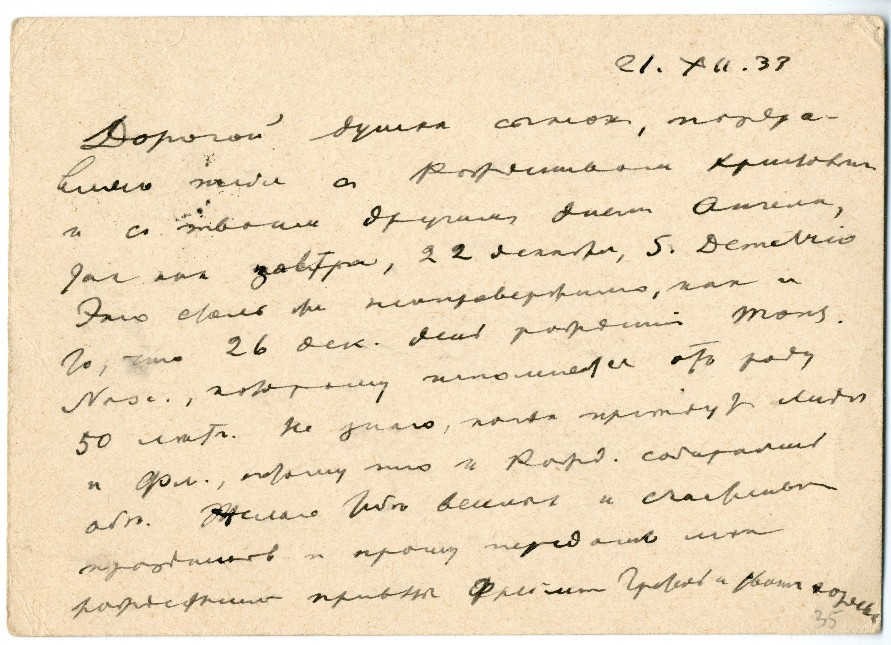 21. XII. 33
Дорогой душка сынок, поздра-
вляю тебя с Рождеством Христовым
и с твоим другим днем Ангела,
так как завтра, 22 декабря, S. Demetrio
Это столь же неопровержимо, как и
то, что 26 дек. день рождения Mons.
Nasc., которому исполняется отъ роду
50 лѣтъ. Не знаю, когда приѣдут Лидия
и Фл., потому что к Рожд. собирались
оба. Желаю тебѣ веселых и счастливых
праздников и прошу передать мои
рождественские приветы
35